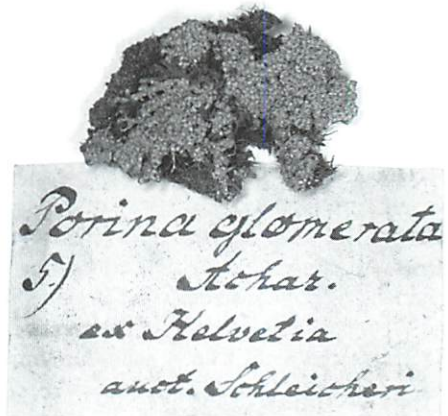 Porina glomerata
5) Achar.
ex Helvetia
auct. Schleicheri